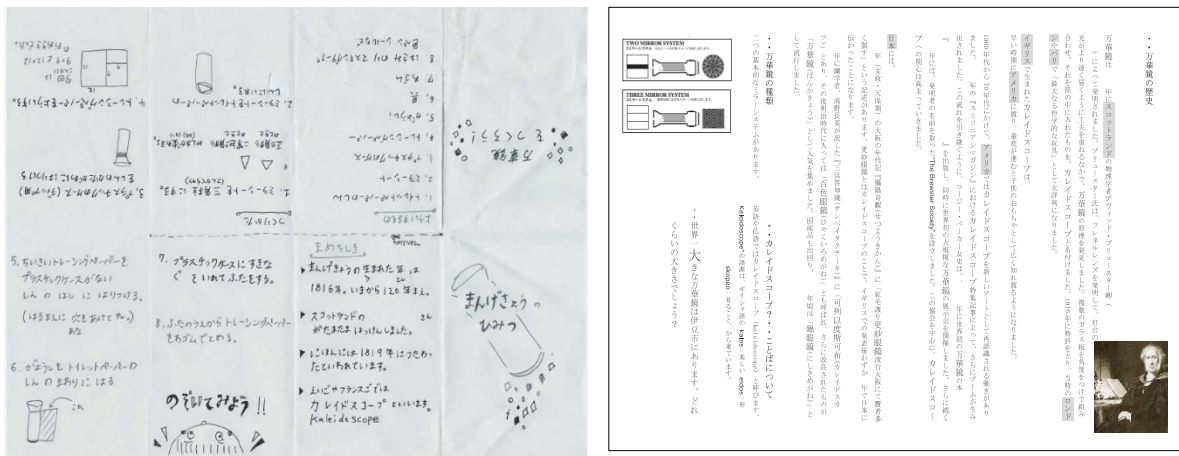 万華鏡
をつくろう！
よういするもの
1. トイレットペーパーのしん
2. ミラーシート
3. プラスチックのケース
4. トレーシングペーパー
7. わゴム
つくりかた
1. ミラーシートを 三角柱 にする。
2. ミラーシートをトイレットペーパーの
しんにいれる。
4. トレーシングペーパーをようい する。
5. ちいさいトレーシングペーパーを
プラスチックケースがない
しんの はし に はりつける。
(はるまえに 穴をあけてね。)
あな
6. がようしを トイレットペーパーの
しんの まわりに はる
これ
7. プラスチックケースにすきな
ぐ をいれてふたをする。
8. ふたのうえから トレーシングペーパー
をわゴムでとめる。
のぞいてみよう!!
まめちしき
▶ まんげきょうの生まれた年は
1816年。
▶ スコットランドの
さん
がたまたま はっけんしました。
▶ にほんには1819年につたわっ
たといわれています。
▶ えいごやフランスごでは
カレイドスコープといいます。
Kaleidoscope
まんげきょうの
ひみつ
・・万華鏡の歴史
万華鏡は 年にスコットランドの物理学者デヴィッド・ブリュースター卿(
)によって発明されました。ブリュースター氏は、フレネルレンズを発明して、灯台の
光がより遠く届くように工夫を重ねるなかで、万華鏡の原理を発見しました。複数のガラス板を角度をつけて組み
合わせ、それを筒の中に入れたものを、カレイドスコープと名付けました。1816年に特許をとり、当時のロンド
ンやパリで「偉大なる哲学的な玩具」として大評判になりました。
イギリスで生まれたカレイドスコープは、
早い時期にアメリカに渡り、量産が進むと子供のおもちゃとして広く知れ渡るようになりました。
1960年代から70年代にかけて、アメリカではカレイドスコープを新しいアートとして再認識される動きがあり
ました。 年の『スミソニアンマガジン』におけるカレイドスコープ特集記事によって、さらにブームが生み
出されました。この流れを引き継ぐように、コージー・ベーカー女史は、 年に世界初の万華鏡の本
『 』を出版し、同時に世界初の大規模な万華鏡の展示会を開催しました。さらに続く
年には、発明者の名前を取った"The Brewster Society"を設立しました。この協会を中心に、カレイドスコー
プへの関心は高まっていきました。
日本には、
年(文政・天保期)の大阪の年代記『摂陽奇観(せつようきかん)』に「紅毛渡り更紗眼鏡流行大阪にて贋者多
く製す」という記述があります。更紗眼鏡とはカレイドスコープのことで、イギリスでの発表後わずか 年で日本に
伝わったことになります。
年に蘭学者、高野長英が訳した『三兵答知幾(サンペイタクチーキ)』に「可列以度斯可布(カレイドスカ
ツ)」とあり、その後明治時代に入っては「百色眼鏡(ひゃくいろめがね)」とも呼ばれ、さらに改良されたものが
「万華鏡(ばんかきょう)」として人気を集めました。国産品も出回り、 年頃は「錦眼鏡(にしきめがね)」と
して流行しました。
・・万華鏡の種類
二つの基本的なミラーシステムがあります。
TWO MIRROR SYSTEM
THREE MIRROR SYSTEM
・・カレイドスコープ?・・・ことばについて
英語や仏語ではカレイドスコープ(kaleidoscope)と呼びます。
Kaleidoscopeの語源は、ギリシャ語の kalos :美しい eidos :形
skopeo :見ること、から来ています。
・・世界一大きな万華鏡は伊豆市にあります。どれ
くらいの大きさでしょう?